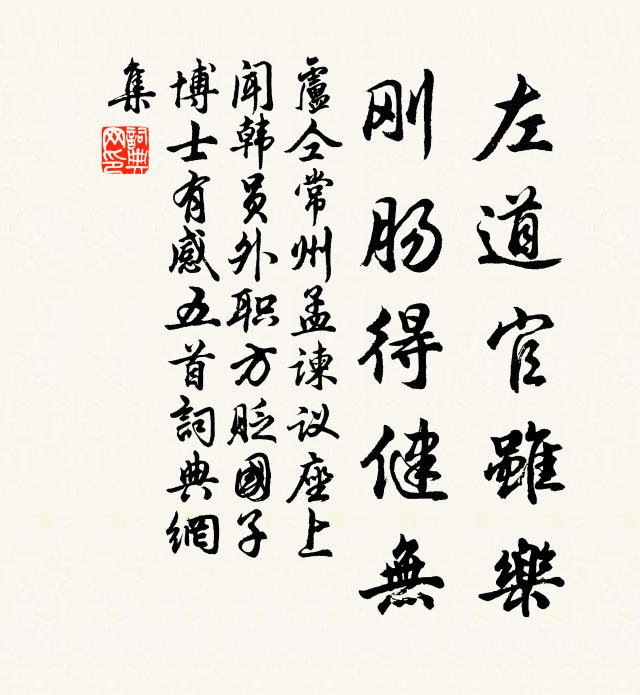 左道官雖樂
刚肠得健無
盧仝常州孟諫议座上
闻韩员外职方贬國子
博士有感五首詞典網
集
詞典網印